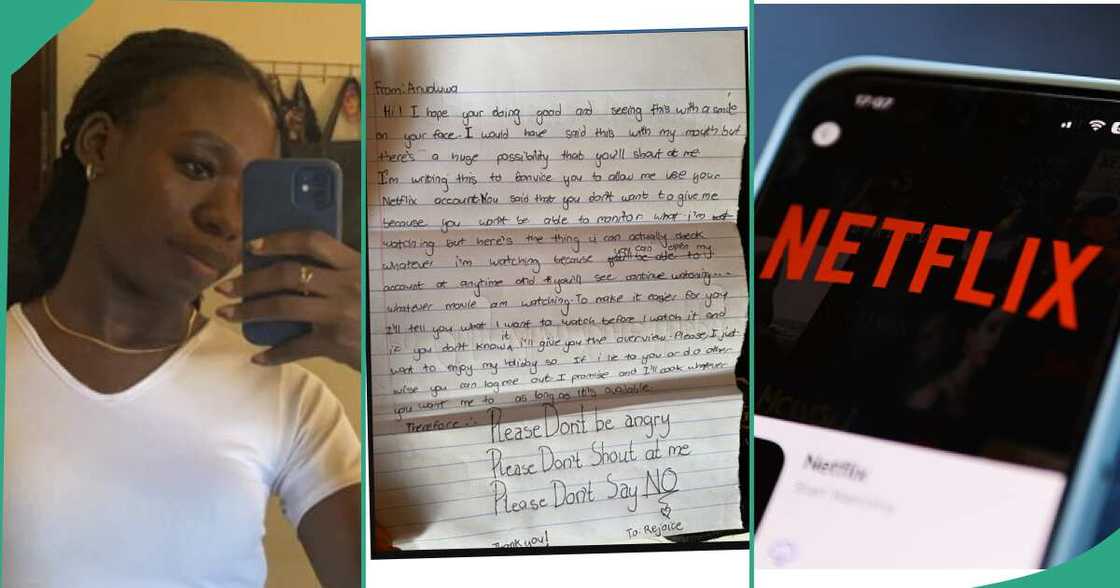 From: Anuoluwa
Hi! I hope your doing good and seeing this with a smile
on your face. I would have said this with my mouth but
there's a huge possibility that you'll shout at me
I'm writing this to convice you to allow me use your
Netflix account. You said that you don't want to give me
because you won't be able to monitor what i'm
watching but here's the thing u can actually check
whatever i'm watching because you can open my
account at anytime and you'll see continue watching....
whatever movie am watching. To make it easier for you
I'll tell you what I want to watch before I watch it and
if you don't know it i'll give you the overview. Please I just
want to enjoy my holiday so. If i lie to you or do other
wise you can log me out I promise and I'll cook whatever
you want me to as long as it's available.
Therefore ∴
Please Don't be angry
Please Don't Shout at me
Please Don't Say NO
To: Rejoice
Thank you!
17:07
NETFLIX
Netflix